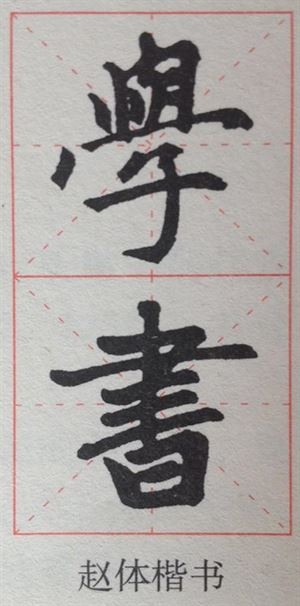 學
書
赵体楷书